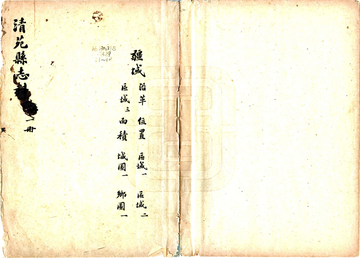 疆域 沿革 位置 區域一 區域二
區域三 面積 城圖一 鄉圖一
清苑縣志
一冊